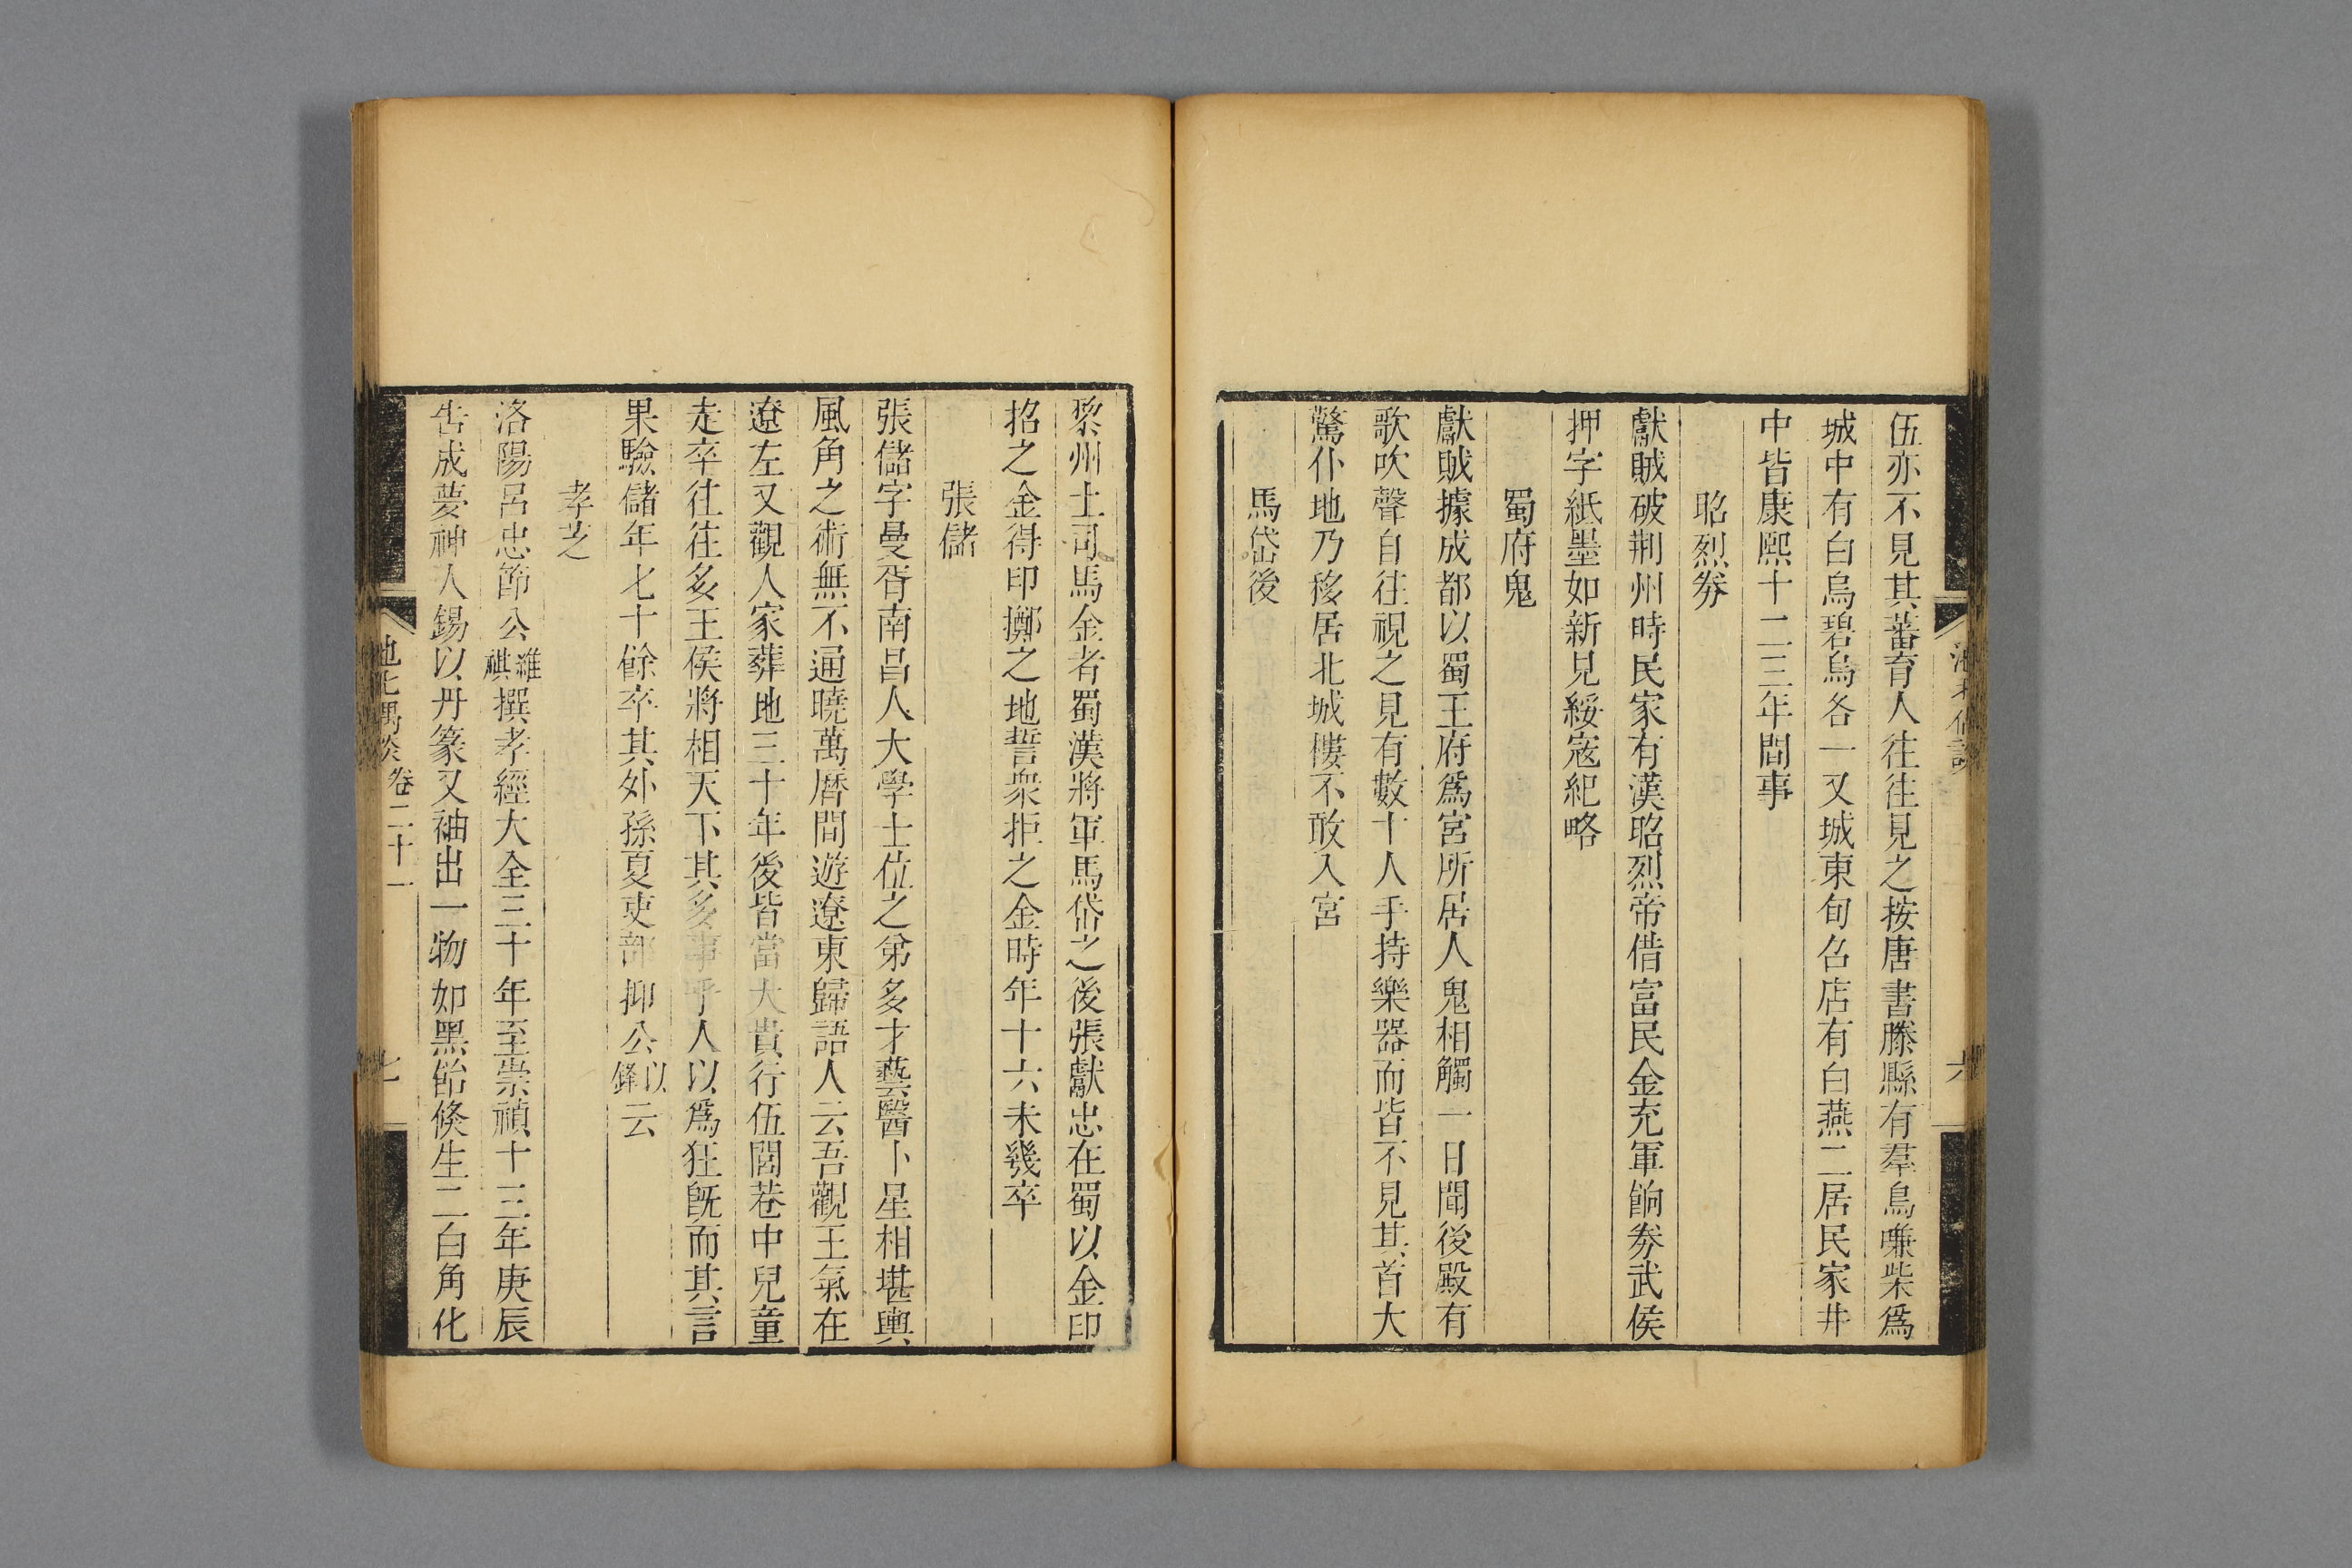 伍亦不見其蕃育人往往見之按唐書滕縣有羣鳥嗛柴爲
城中有白烏碧烏各一又城東旬名店有白燕二居民家井
中皆康熙十二三年間事
昭烈劵
獻賊破荆州時民家有漢昭烈帝借富民金充軍餉劵武侯
押字紙墨如新見綏寇紀略
蜀府鬼
獻賊據成都以蜀王府爲宮所居人鬼相觸一日聞後殿有
歌吹聲自往視之見有數十人手持樂器而皆不見其首大
驚仆地乃移居北城樓不敢入宮
馬岱後
黎州土司馬金者蜀漢將軍馬岱之後張獻忠在蜀以金印
招之金得印擲之地誓衆拒之金時年十六未幾卒
張儲
張儲字曼胥南昌人大學士位之弟多才藝醫卜星相堪輿
風角之術無不通曉萬曆間遊遼東歸語人云吾觀王氣在
遼左又觀人家葬地三十年後皆當大貴行伍閭巷中兒童
走卒往往多王侯將相天下其多事乎人以爲狂旣而其言
果驗儲年七十餘卒其外孫夏吏部抑公以鋒云
孝芝
洛陽呂忠節公維祺撰孝經大全三十年至崇禎十三年庚辰
告成夢神人錫以丹篆又袖出一物如黑飴倐生二白角化
池北偶談 卷二十一 七